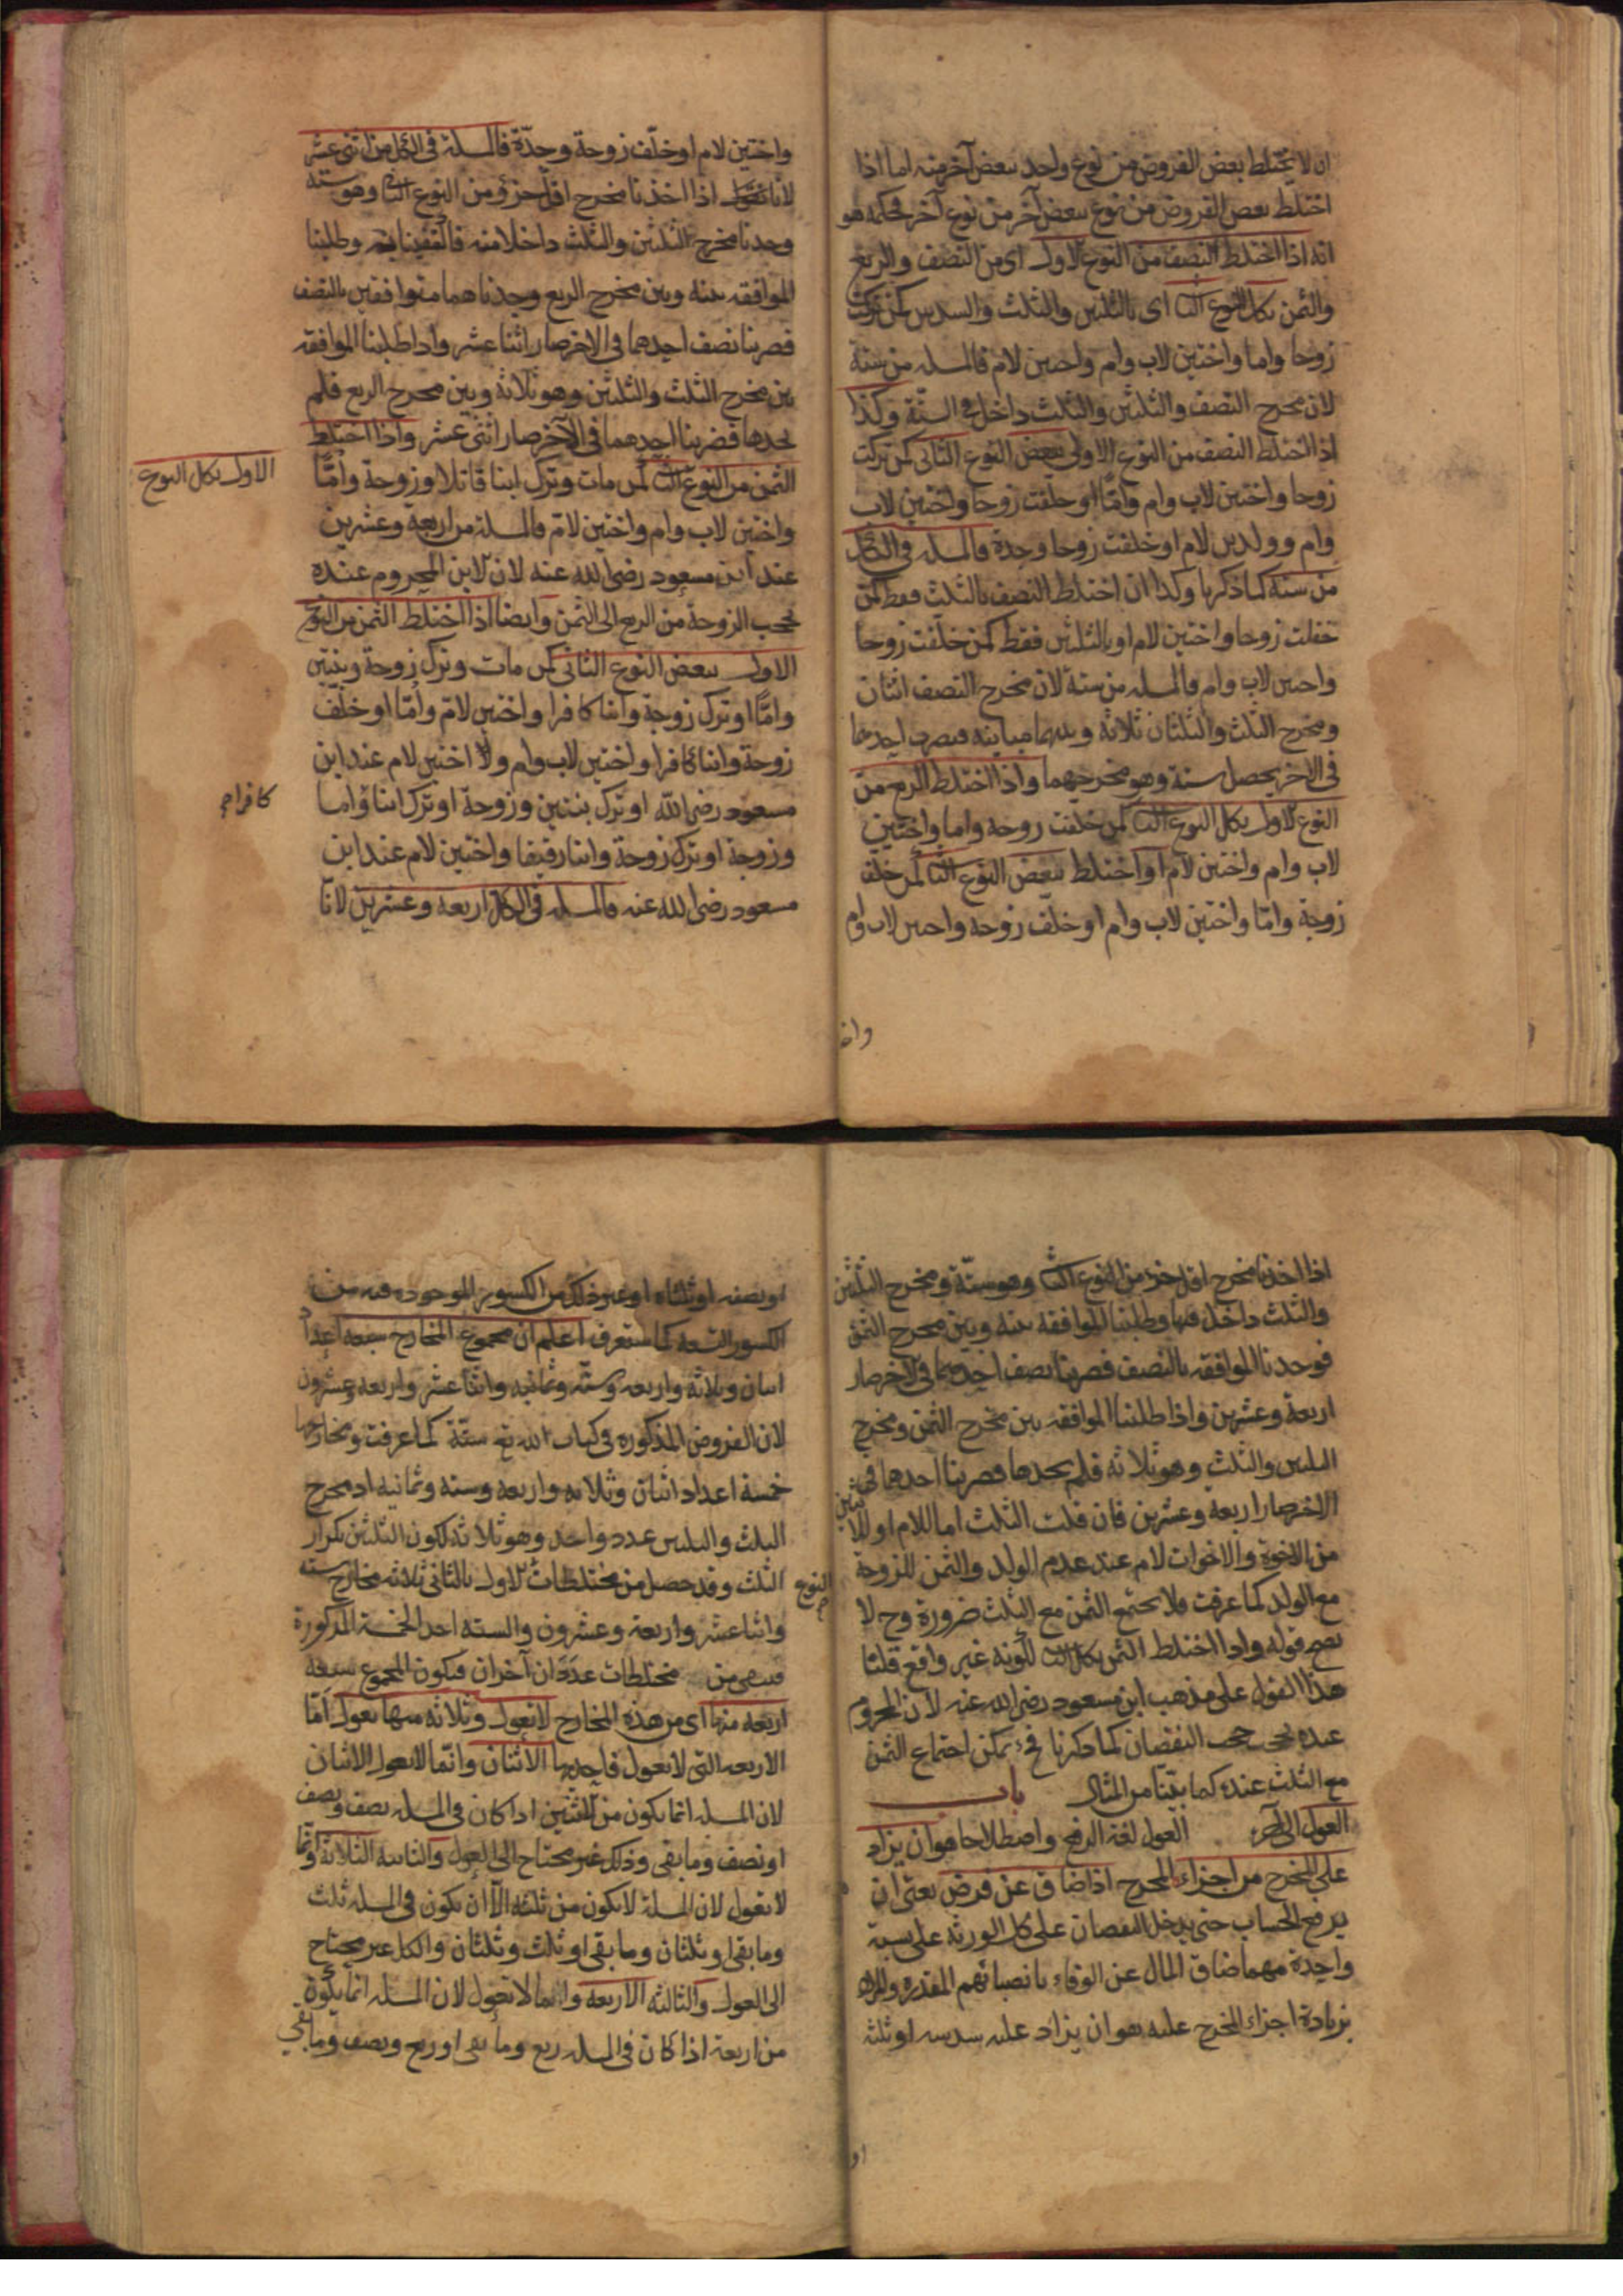 ان لا يختلط بعض الفروض من نوع واحد ببعض آخر منه اما اذا
اختلط بعض الفروض من نوع ببعض آخر من نوع آخر فحكمه هو
انه اذا اختلط النصف من النوع الاول اى من النصف والربع
والثمن بكل النوع الثانى اى بالثلثين والثلث والسدس كمن تركت
زوجا واما واختين لاب وام واختين لام فالمسلة من ستة
لان مخرج النصف والثلثين والثلث داخل فى الستة وكذا
اذا اختلط النصف من النوع الاول ببعض النوع الثانى كمن تركت
زوجا واختين لاب وام وامّا او خلّفت زوجا واختين لاب
وام وولدين لام او خلفت زوجا وجدة فالمسلة فى الكل
من ستة كما ذكرنا وكذا ان اختلط النصف بالثلث فقط كمن
خفلت زوجا واختين لام او بالثلثين فقط كمن خلّفت زوجا
واختين لاب وام فالمسلة من ستة لان مخرج النصف اثنان
ومخرج الثلث والثلثان ثلاثة وبينهما مباينة فيضرب احديهما
فى الاخر يحصل ستة وهو مخرجهما واذا اختلط الربع من
النوع الاول بكل النوع الثانى كمن خلفت زوجة واما واختين
لاب وام واختين لام او اختلط ببعض النوع الثانى كمن خلّف
زوجة وامّا واختين لاب وام او خلّف زوجة واختين لاب وام
واخـ
واختين لام او خلّف زوجة وجدّة فالمسلة فى الكل من اثنى عشر
لانا اذا اخذنا مخرج اقل جزؤ من النوع الثانى وهو ستة
وجدنا مخرج الثلثين والثلث داخلا منه فاكتفينا به وطلبنا
الموافقة بينه وبين مخرج الربع وجدناهما متوافقين بالنصف
فضربنا نصف احدهما فى الاخر صار اثنا عشر واذا طلبنا الموافقة
بين مخرج الثلث والثلثين وهو ثلاثة وبين مخرج الربع فلم
نجدها فضربنا احدهما فى الآخر صار اثنى عشر واذا اختلط
الثمن من النوع الاول بكل النوع
الثانى كمن مات وترك ابنا قاتلا وزوجة وامّا
واختين لاب وام واختين لامّ فالمسلة من اربعة وعشرين
عند ابن مسعود رضى الله عنه لان الابن المحروم عنده
يحجب الزوجة من الربع الى الثمن وايضا اذا اختلط الثمن من النوع
الاول ببعض النوع الثانى كمن مات وترك زوجة وبنتين
وامّا او ترك زوجة وابنا كافرا واختين لامّ وامّا او خلّف
زوجة وابنا كافرا واختين لاب وام ولا اختين لام عند ابن
مسعود رضى الله او ترك بنتين وزوجة او ترك ابنا واما
كافرا
وزوجة او ترك زوجة وابنا رقيقا واختين لام عند ابن
مسعود رضى الله عنه فالمسلة فى الكل اربعة وعشرين لانا
اذا اخذنا مخرج اقل جزء من النوع الثانى وهو ستّة ومخرج الثلثين
والثلث داخل فيها وطلبنا الموافقة بينه وبين مخرج الثمن
فوجدنا الموافقة بالنصف فضربنا نصف احديهما فى الاخر صار
اربعة وعشرين واذا طلبنا الموافقة بين مخرج الثمن ومخرج
الثلثين والثلث وهو ثلاثة فلم نجدها فضربنا احدهما فى
الاخر صار اربعة وعشرين فان قلت الثلث اما للام او للاثنين
من الاخوة والاخوات لام عند عدم الولد والثمن للزوجة
مع الولد كما عرفت فلا يجتمع الثمن مع الثلث ضرورة وح لا
يصح قوله واذا اختلط الثمن بكل الثانى لكونه غير واقع قلنا
هذا القول على مذهب ابن مسعود رضى الله عنه لان المحروم
عنده يحجب حجب النقصان كما ذكرنا فح يمكن اجتماع الثمن
مع الثلث عنده كما بيّنا من المثال باب
العول الى آخره العول لغة الرفع واصطلاحا هو ان يزاد
على المخرج من اجزاء المخرج اذا ضاق عن فرض يعنى ان
يرفع الحساب حتى يدخل النقصان على كل الورثة على نسبة
واحدة مهما ضاق المال عن الوفاء بانصبائهم المقدرة والمراد
بزيادة اجزاء المخرج عليه هو ان يزاد عليه سدسه او ثلثه
او
او نصفه او ثلثاه او غير ذلك من الكسور الموجودة فيه من
الكسور التسعة كما ستعرف اعلم ان مجموع المخارج سبعة اعداد
اثنان وثلاثة واربعة وستّة وثمانية واثنا عشر واربعة وعشرون
لان الفروض المذكورة فى كتاب الله تع ستّة كما عرفت ومخارجها
خمسة اعداد اثنان وثلاثة واربعة وستة وثمانية اذ مخرج
الثلث والثلثين عدد واحد وهو ثلاثة لكون الثلثين تكرار
الثلث وقد حصل من مختلطات النوع الاول بالثانى ثلاثة مخارج ستة
واثنا عشر واربعة وعشرون والستة احد الخمسة المذكورة
فبقى من مختلطات عددان آخران فيكون المجموع سبعة
اربعة منها اى من هذه المخارج لا تعول وثلاثة منها تعول امّا
الاربعة التى لا تعول فاحديها الاثنان وانّما لا يعول الاثنان
لان المسلة انما يكون من اثنين اذا كان فى المسلة نصف ونصف
او نصف وما بقى وذلك غير محتاج الى العول والثانية الثلاثة وانّما
لا تعول لان المسلة لا يكون من ثلثة الا ان يكون فى المسلة ثلث
وما بقى او ثلثان وما بقى او ثلث وثلثان والكل غير محتاج
الى العول والثالثة الاربعة وانما لا تعول لان المسلة انما يكون
من اربعة اذا كان فى المسلة ربع وما بقى او ربع ونصف وما بقى